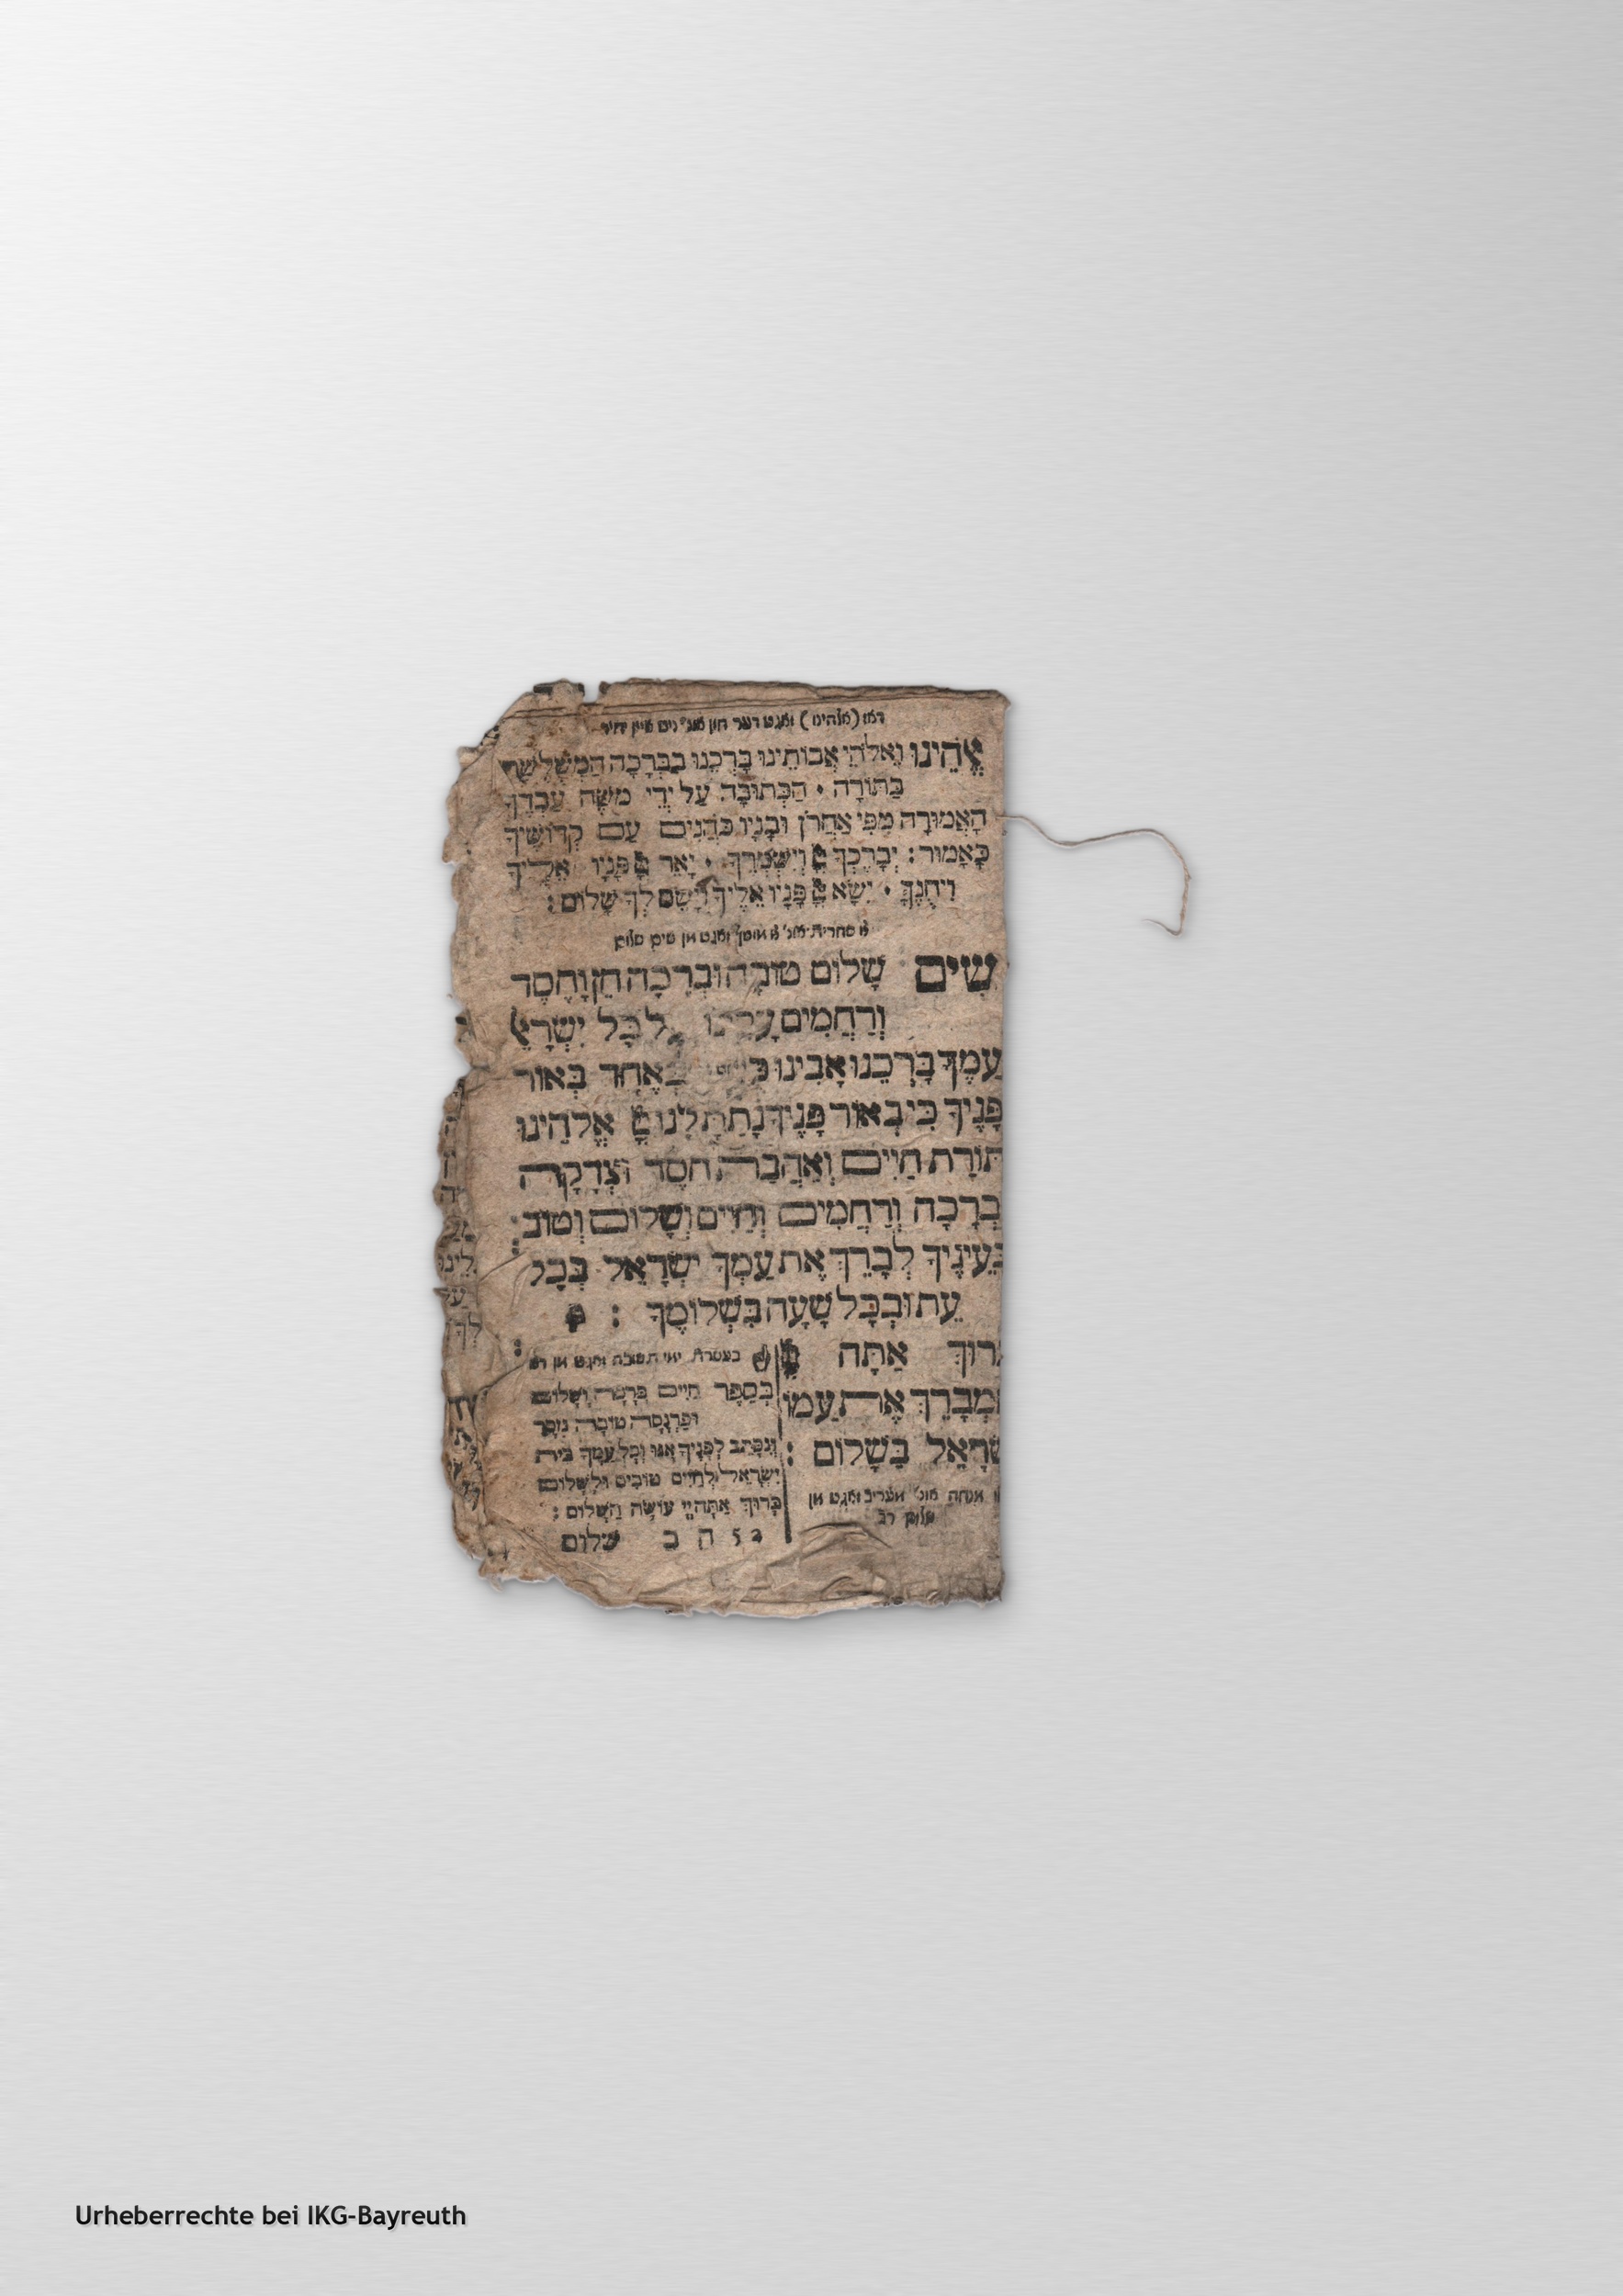 דאז (אלהינו) זאגט דער חזן
אֱלֹהֵינוּ וֵאלֹהֵי אֲבוֹתֵינוּ בָּרְכֵנוּ בַבְּרָכָה הַמְשֻׁלֶּשֶׁת
בַּתּוֹרָה • הַכְּתוּבָה עַל יְדֵי מֹשֶׁה עַבְדֶּךָ
הָאֲמוּרָה מִפִּי אַהֲרֹן וּבָנָיו כֹּהֲנִים עַם קְדוֹשֶׁיךָ
כָּאָמוּר : יְבָרֶכְךָ וְיִשְׁמְרֶךָ • יָאֵר פָּנָיו אֵלֶיךָ
וִיחֻנֶּךָּ • יִשָּׂא פָּנָיו אֵלֶיךָ וְיָשֵׂם לְךָ שָׁלוֹם :
צו שחרית אונ' צו מוסף זאגט מן שים שלום
שִׂים שָׁלוֹם טוֹבָה וּבְרָכָה חֵן וָחֶסֶד
וְרַחֲמִים עָלֵינוּ כָּל יִשְׂרָאֵל
עַמֶּךָ בָּרְכֵנוּ אָבִינוּ בְּאוֹר
פָּנֶיךָ כִּי בְאוֹר פָּנֶיךָ נָתַתָּ לָּנוּ אֱלֹהֵינוּ
תּוֹרַת חַיִּים וְאַהֲבַת חֶסֶד וּצְדָקָה
בְרָכָה וְרַחֲמִים וְחַיִּים וְשָׁלוֹם וְטוֹב
בְּעֵינֶיךָ לְבָרֵךְ אֶת עַמְּךָ יִשְׂרָאֵל בְּכָל
עֵת וּבְכָל שָׁעָה בִּשְׁלוֹמֶךָ :
רוּךְ אַתָּה
מְבָרֵךְ אֶת עַמּוֹ
שְׂרָאֵל בַּשָּׁלוֹם :
מנחה אונ' מעריב זאגט מן
שלום רב
בעשרת ימי תשובה זאגט מן
בְּסֵפֶר חַיִּים בְּרָכָה וְשָׁלוֹם
וּפַרְנָסָה טוֹבָה נִזָּכֵר
וְנִכָּתֵב לְפָנֶיךָ אָנוּ וְכָל עַמְּךָ בֵּית
יִשְׂרָאֵל לְחַיִּים טוֹבִים וּלְשָׁלוֹם
בָּרוּךְ אַתָּה יְיָ עוֹשֵׂה הַשָּׁלוֹם :
שלום
Urheberrechte bei IKG-Bayreuth